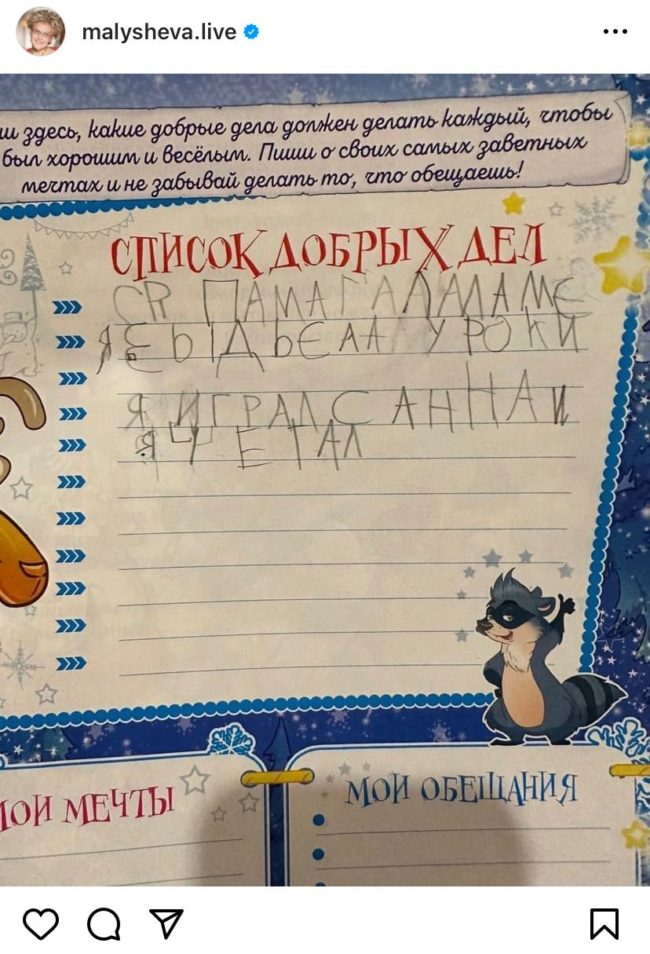 malysheva.live
ши здесь, какие добрые дела должен делать каждый, чтобы
был хорошим и весёлым. Пиши о своих самых заветных
мечтах и не забывай делать то, что обещаешь!
СПИСОК ДОБРЫХ ДЕЛ
СЯ ПАМАГАЛАМАМЕ
Я Е Ы Д ЬЕЛА УРОКИ
Я ИГРАЛ С АННАЙ
Я ЧЕТАЛ
МОИ МЕЧТЫ
МОИ ОБЕЩАНИЯ